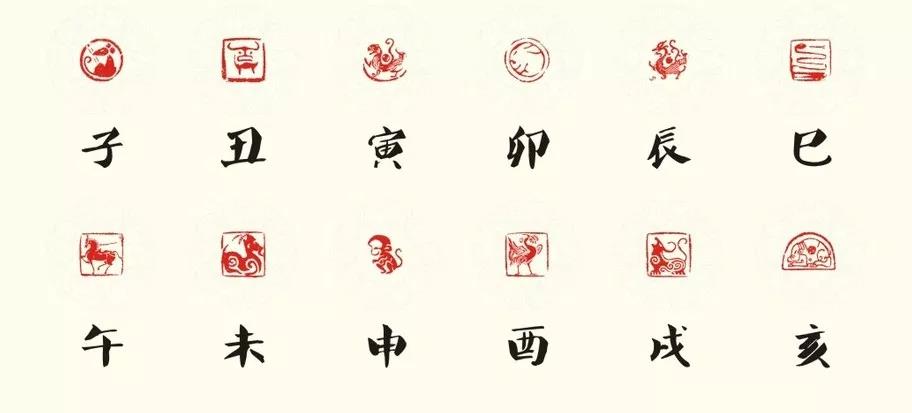 子 丑 寅 卯 辰 巳
午 未 申 酉 戌 亥